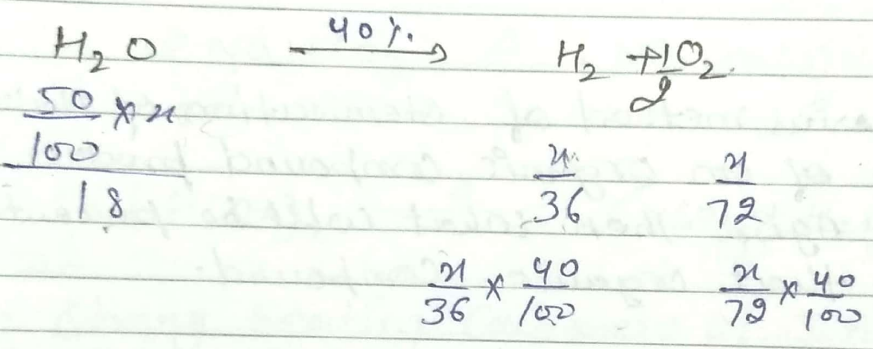 H₂O —40%→ H₂ + 1/2 O₂
50/100 × x / 18
x/36 x/72
x/36 × 40/100 x/72 × 40/100